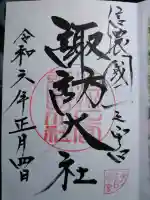 信濃國一之宮
諏訪大社
令和六年正月四日